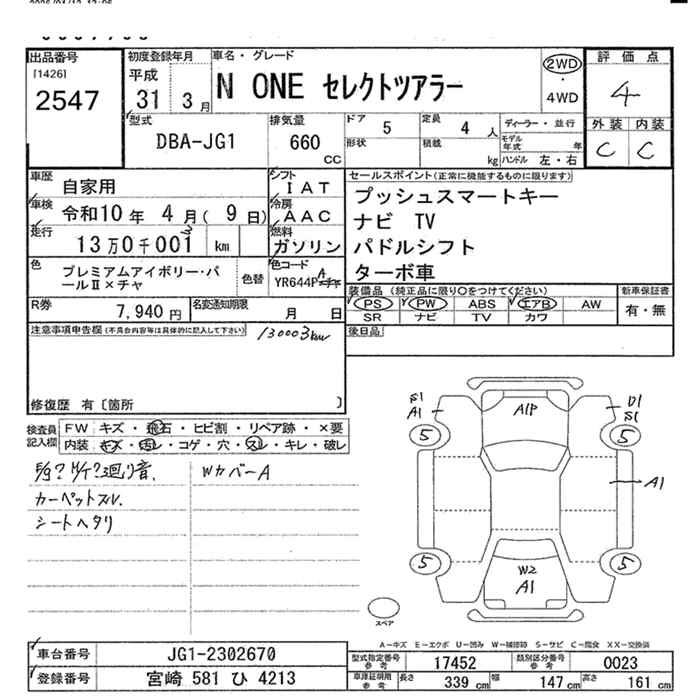 出品番号
[1426]
2547
初度登録年月
平成
31 3月
車名・グレード
N ONE セレクトツアラー
2WD
・
4WD
評価点
4
外装 内装
C C
型式
DBA-JG1
排気量
660
cc
ドア 5
形状
定員 4 人
積載 kg
ディーラー・並行
モデル年式 年
ハンドル 左・右
車歴 自家用
車検 令和10年 4月(9日)
走行 13万0千003 km
3
シフト IAT
冷房 AAC
燃料 ガソリン
色 プレミアムアイボリー・パールⅡ×チャ
色替
色コード
YR644P
A
セールスポイント(正常に機能するものに限ります)
プッシュスマートキー
ナビ TV
パドルシフト
ターボ車
装備品(純正品に限り○をつけてください)
PS PW ABS エアB AW
SR ナビ TV カワ
新車保証書
有・無
R券 7,940円
名変通知期限 月 日
後日品
注意事項申告欄(不具合内容等は具体的に記入して下さい)
130003km
修復歴 有〔箇所 〕
検査員記入欄
FW キズ・飛石・ヒビ割・リペア跡・×要
内装 キズ・汚レ・コゲ・穴・スレ・キレ・破レ
廻り音.
WカバーA
カーペットスレ.
シートヘタリ
S1
A1
5
A1P
D1
S1
5
A1
5
W2
A1
5
スペア
A-キズ E-エクボ U-凹み W-補修跡 S-サビ C-腐食 XX-交換済
車台番号 JG1-2302670
登録番号 宮崎 581 ひ 4213
型式指定番号 参考 17452
類別区分番号 参考 0023
車庫証明用 参考 長さ 339cm 幅 147cm 高さ 161cm